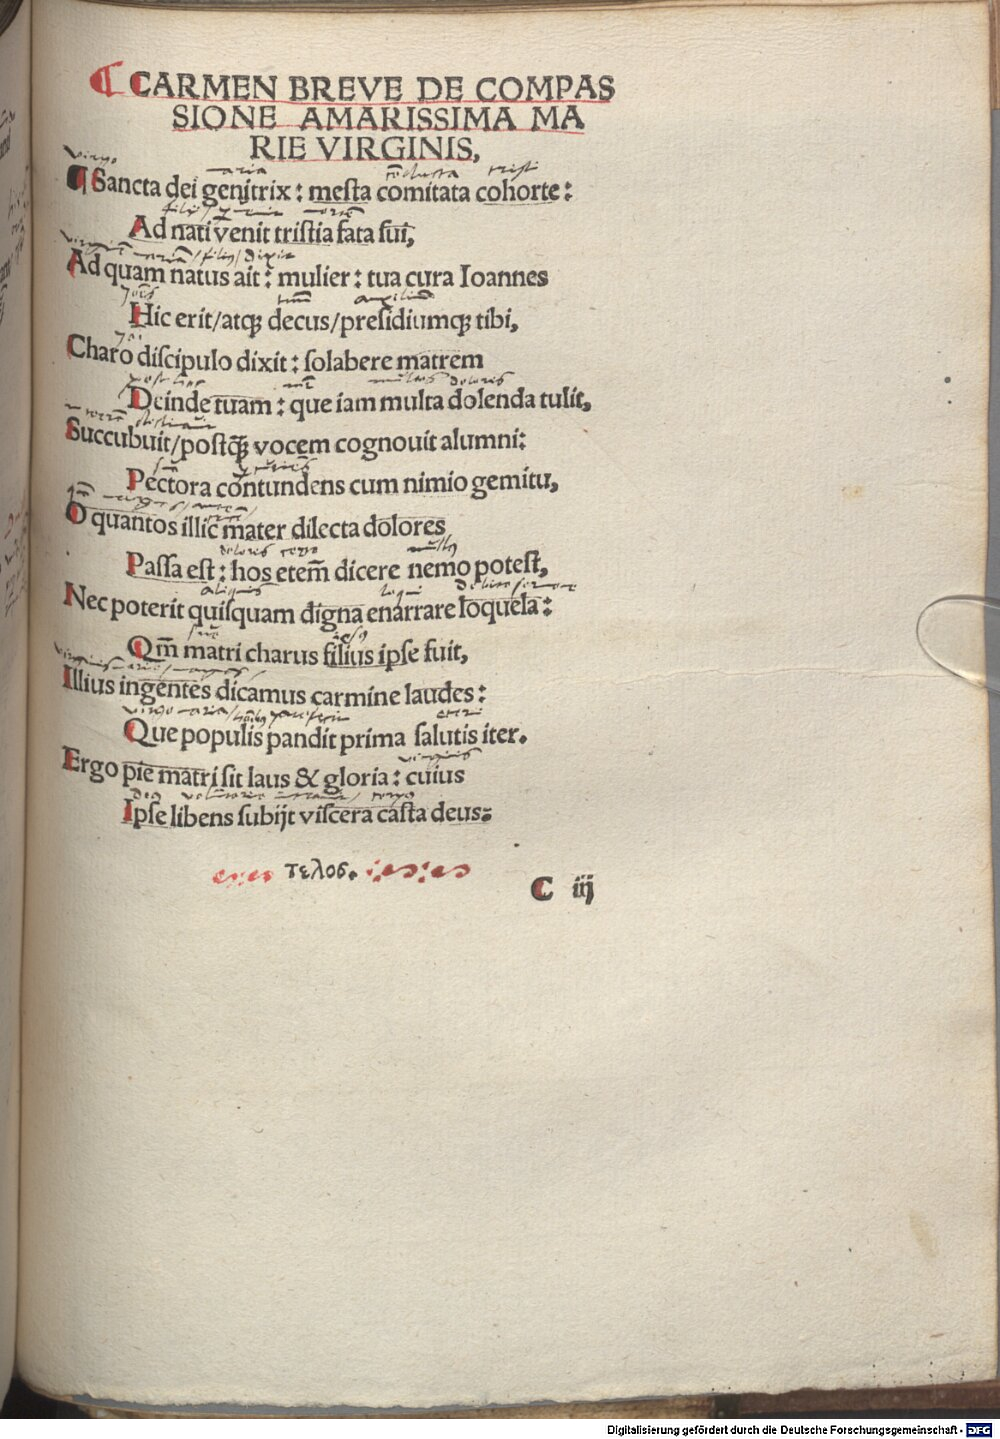 ¶ CARMEN BREVE DE COMPAS
SIONE AMARISSIMA MA
RIE VIRGINIS,
virgo maria tristi
¶ Sancta dei genitrix : mesta comitata cohorte :
Ad nati venit tristia fata sui,
filius / dixit
Ad quam natus ait : mulier : tua cura Ioannes
auxiliū
Hic erit/atqꝫ decus/presidiumqꝫ tibi,
Charo discipulo dixit : solabere matrem
dolores
Deinde tuam : que iam multa dolenda tulit,
Succubuit/postq̄ꝫ vocem cognouit alumni:
Pectora contundens cum nimio gemitu,
O quantos illic mater dilecta dolores
dolores nullus
Passa est : hos etem̄ dicere nemo potest,
aliquis loqui
Nec poterit quisquam digna enarrare loquela :
Qm̄ matri charus filius ipse fuit,
virginis marie
Illius ingentes dicamus carmine laudes :
virgo maria
Que populis pandit prima salutis iter.
virginis
Ergo pie matri sit laus & gloria : cuius
Ipse libens subijt viscera casta deus:
τελος.
C iij
Digitalisierung gefördert durch die Deutsche Forschungsgemeinschaft - DFG